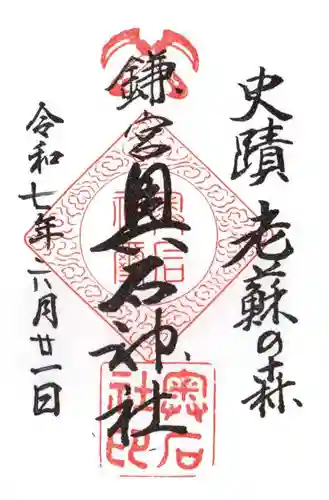 史蹟 老蘇の森
鎌宮 奥石神社
令和七年六月廿一日
奥石神社印